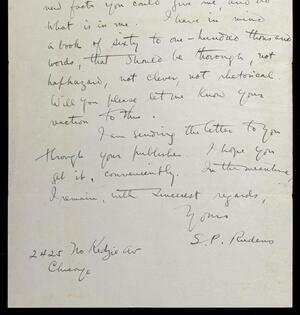 new facts you could give me, and do
what is in me. I have in mind
a book of sixty to one-hundred thousand
words, that should be thorough, not
haphazard, not clever, not rhetorical
Will you please let me know your
reaction to this.
I am sending the letter to you
through your publisher. I hope you
get it, conveniently. In the meantime
I remain, with sincerest regards,
Yours
S. P. Rudens
2425 No Kedzie av
Chicago